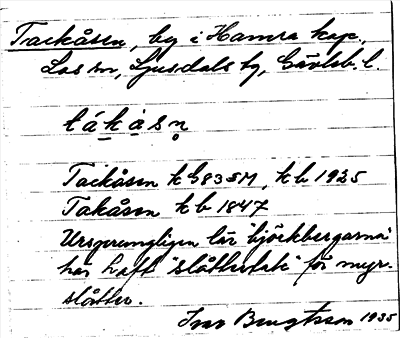 Tackåsen, by i Hamra kap.,
Los sn, Ljusdals tg, Gävleb. l.
tákȧsn̥
Tackåsen k G835M, kb 1925
Takåsen kb 1847
Ursprungligen lär björkbergarna
här haft "slåttertak" för myr-
slåtter.
Ivar Bengtsson 1935